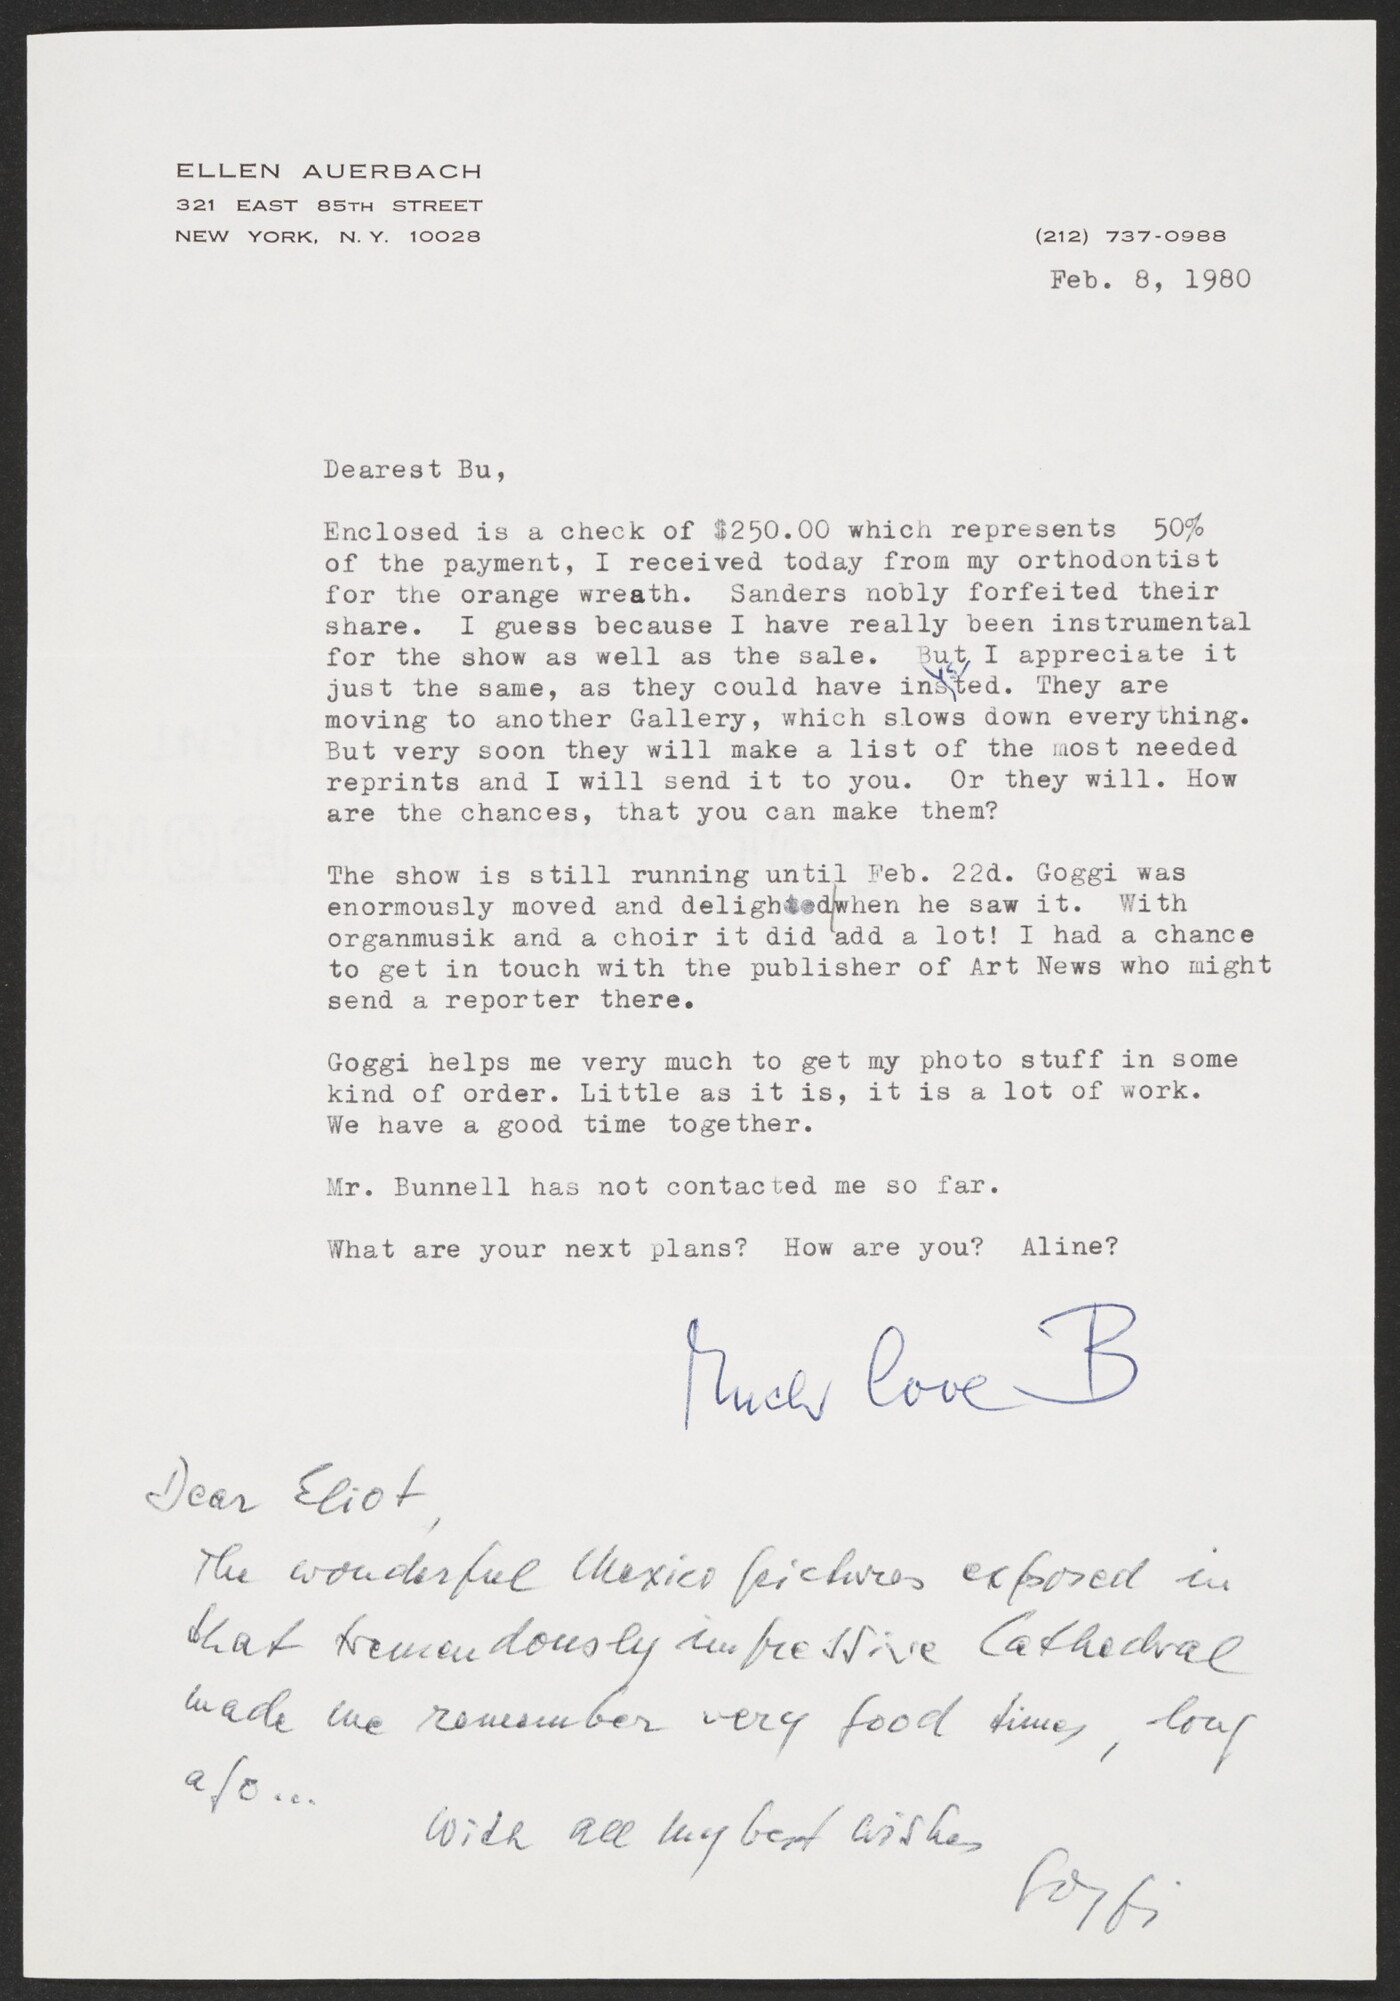 ELLEN AUERBACH
321 EAST 85TH STREET
NEW YORK, N.Y. 10028
(212) 737-0988
Feb. 8, 1980
Dearest Bu,
Enclosed is a check of $250.00 which represents 50%
of the payment, I received today from my orthodontist
for the orange wreath. Sanders nobly forfeited their
share. I guess because I have really been instrumental
for the show as well as the sale. But I appreciate it
just the same, as they could have insisted. They are
moving to another Gallery, which slows down everything.
But very soon they will make a list of the most needed
reprints and I will send it to you. Or they will. How
are the chances, that you can make them?
The show is still running until Feb. 22d. Goggi was
enormously moved and delighted/when he saw it. With
organmusik and a choir it did add a lot! I had a chance
to get in touch with the publisher of Art News who might
send a reporter there.
Goggi helps me very much to get my photo stuff in some
kind of order. Little as it is, it is a lot of work.
We have a good time together.
Mr. Bunnell has not contacted me so far.
What are your next plans? How are you? Aline?
Much love B
Dear Eliot,
The wonderful Mexico pictures exposed in
that tremendously impressive Cathedral
made me remember very good times, long
ago...
With all my best wishes
Goggi